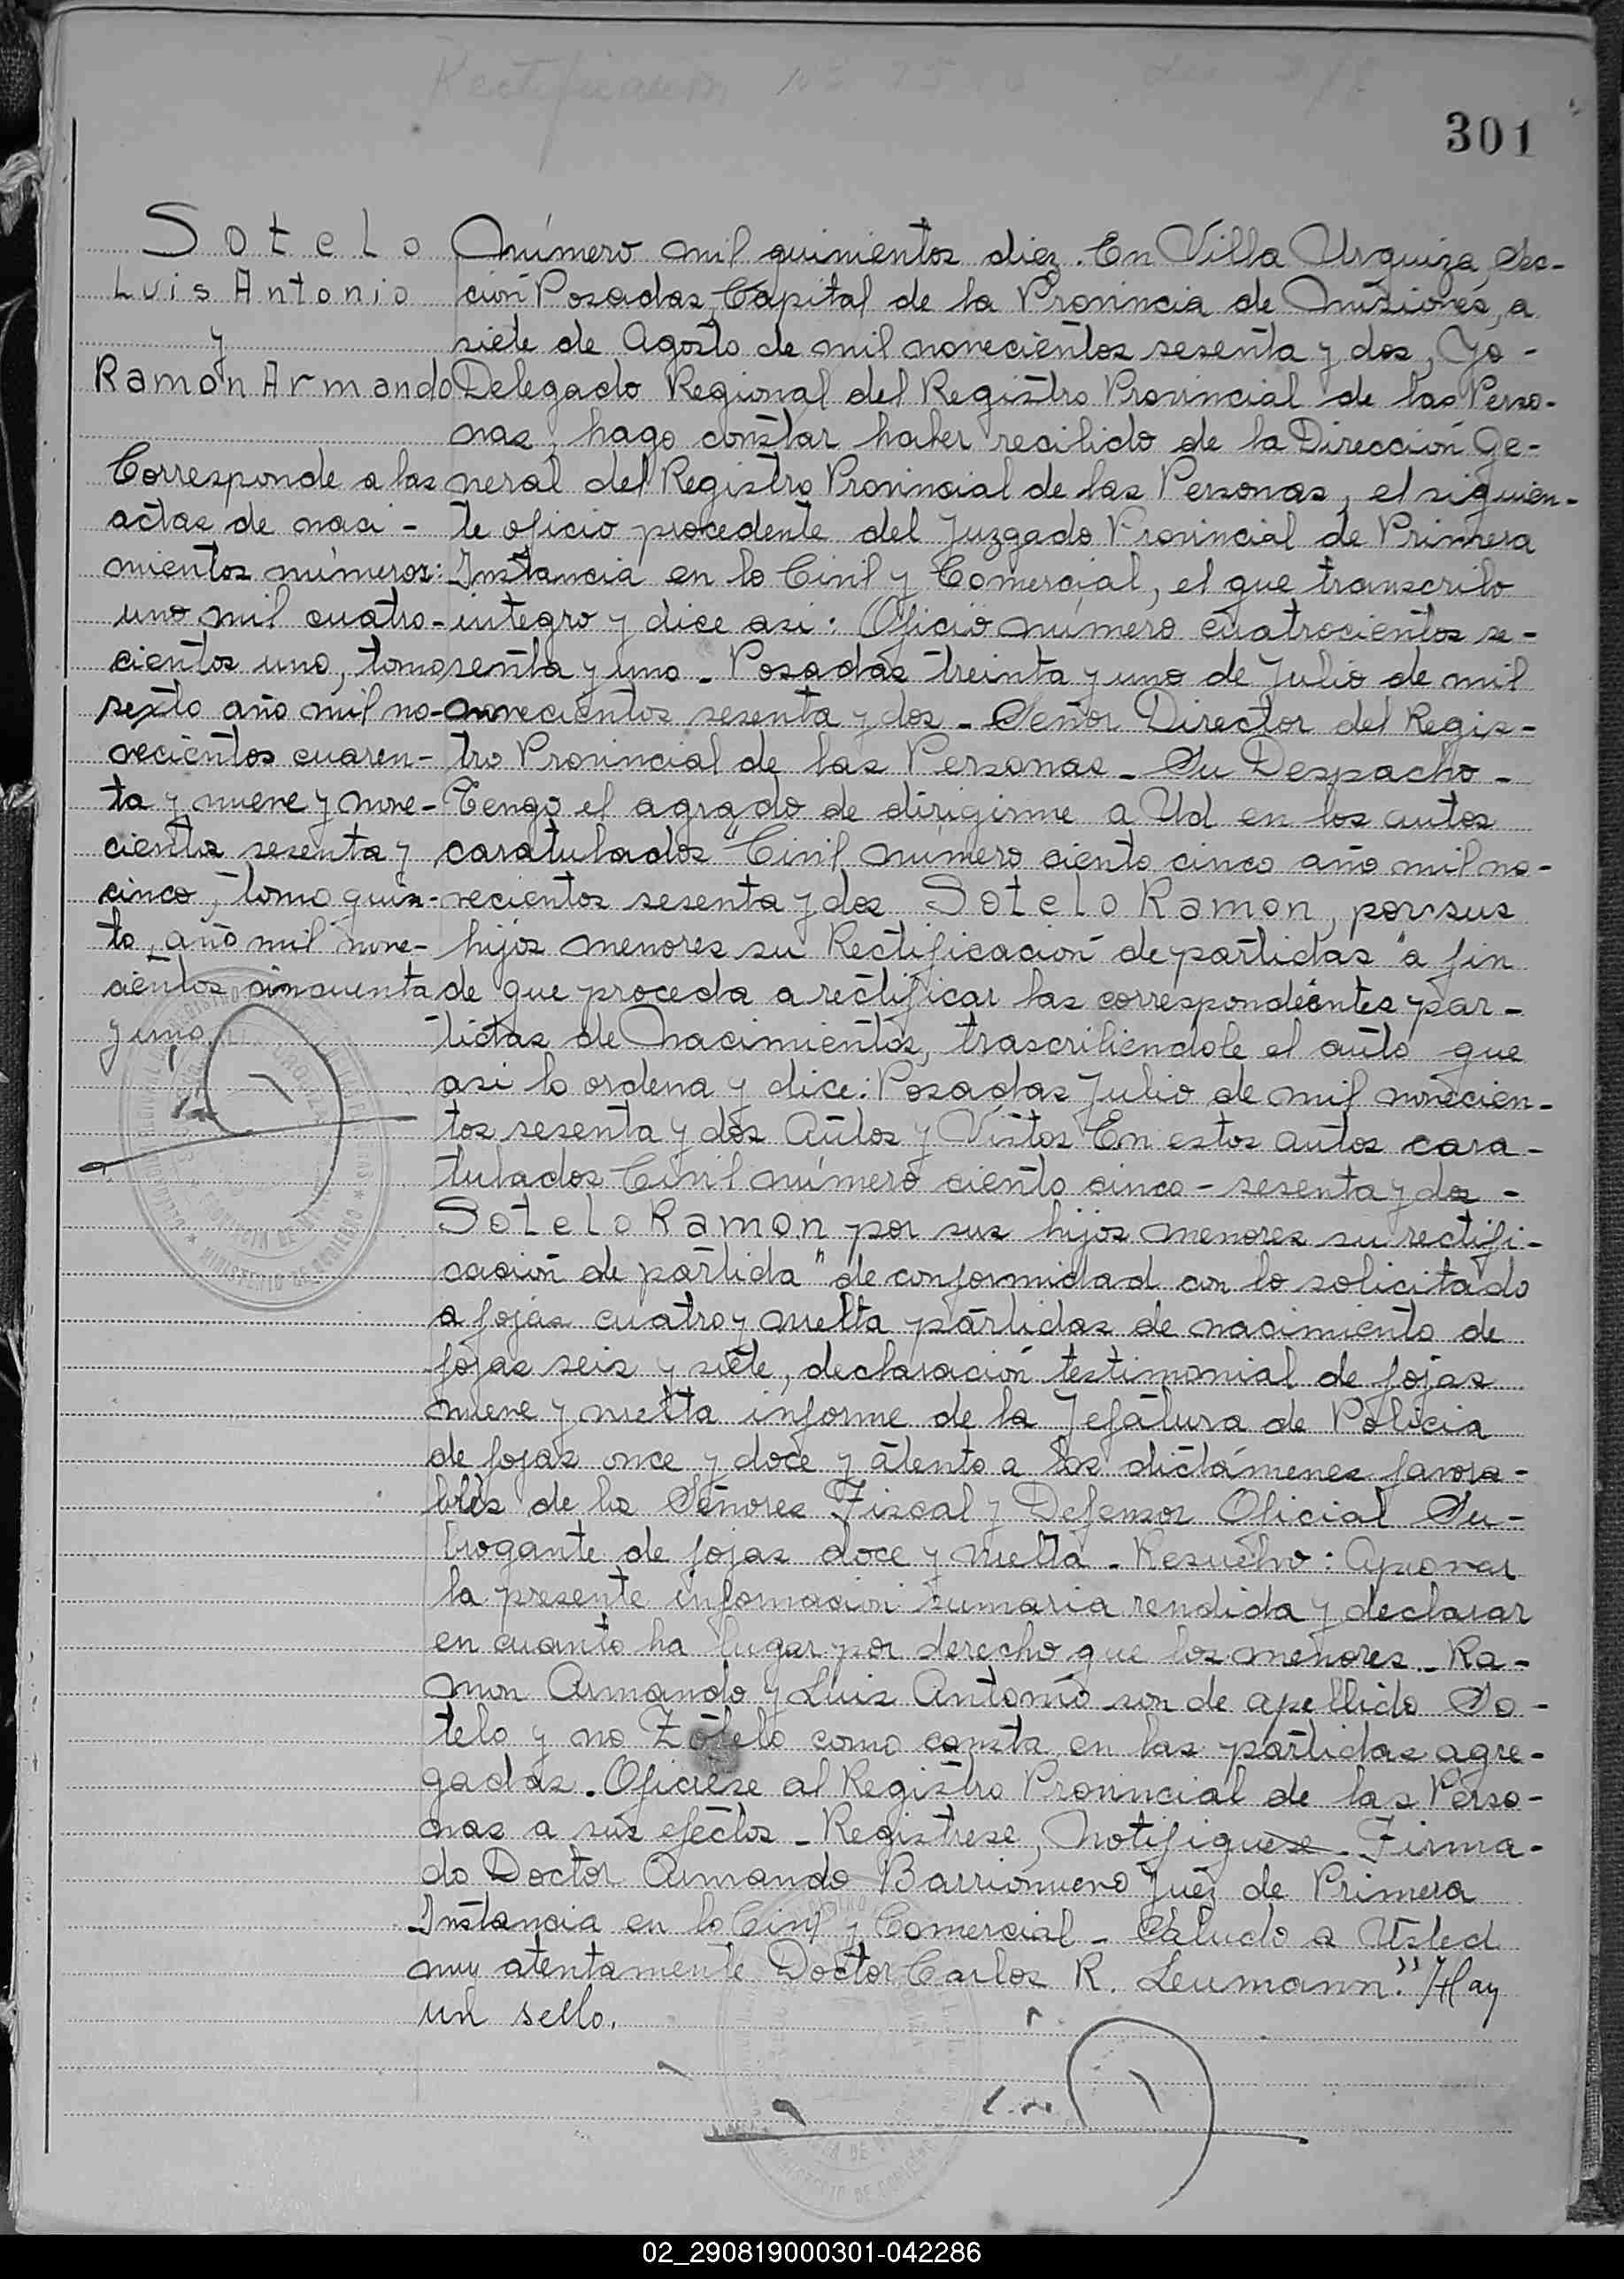 301
Sotelo
Luis Antonio
y
Ramon Armando
Corresponde a las
actas de naci-
mientos números:
uno mil cuatro-
cientos uno, tomo
sexto año mil no-
vecientos cuaren-
ta y nueve y nove-
cientos sesenta y
cinco, tomo quin-
to, año mil nove-
cientos cincuenta
y uno
Número mil quinientos diez. En Villa Urquiza, Sec-
ción Posadas, Capital de la Provincia de Misiones, a
siete de Agosto de mil novecientos sesenta y dos, Yo-
Delegado Regional del Registro Provincial de las Perso-
nas, hago constar haber recibido de la Dirección Ge-
neral del Registro Provincial de las Personas, el siguien-
te oficio procedente del Juzgado Provincial de Primera
Instancia en lo Civil y Comercial, el que transcribo
integro y dice asi: Oficio número cuatrocientos se-
senta y uno - Posadas treinta y uno de Julio de mil
novecientos sesenta y dos - Señor Director del Regis-
tro Provincial de las Personas - Su Despacho -
Tengo el agrado de dirigirme a Ud en los autos
caratulados "Civil número ciento cinco año mil no-
vecientos sesenta y dos Sotelo Ramon, por sus
hijos menores su Rectificación de partidas" a fin
de que proceda a rectificar las correspondientes par-
tidas de Nacimientos, trascribiendole el auto que
asi lo ordena y dice: Posadas Julio de mil novecien-
tos sesenta y dos Autos y Vistos En estos autos cara-
tulados Civil número ciento cinco - sesenta y dos -
Sotelo Ramon por sus hijos menores su rectifi-
cación de partida" de conformidad con lo solicitado
a fojas cuatro y vuelta partidas de nacimiento de
fojas seis y siete, declaración testimonial de fojas
nueve y vuelta informe de la Jefatura de Policia
de fojas once y doce y atento a los dictámenes favora-
bles de los Señores Fiscal y Defensor Oficial Su-
brogante de fojas doce y vuelta - Resuelvo: Aprovar
la presente infomacion sumaria rendida y declarar
en cuanto ha lugar por derecho que los menores - Ra-
mon Armando y Luis Antonio son de apellido So-
telo y no Zotelo como consta en las partidas agre-
gadas. Oficiese al Registro Provincial de las Perso-
nas a sus efectos - Registrese, Notifiquese - Firma-
do Doctor Armando Barrionuevo Juez de Primera
Instancia en lo Civil y Comercial - Saludo a Usted
muy atentamente Doctor Carlos R. Leumann." Hay
un sello.
02_290819000301-042286